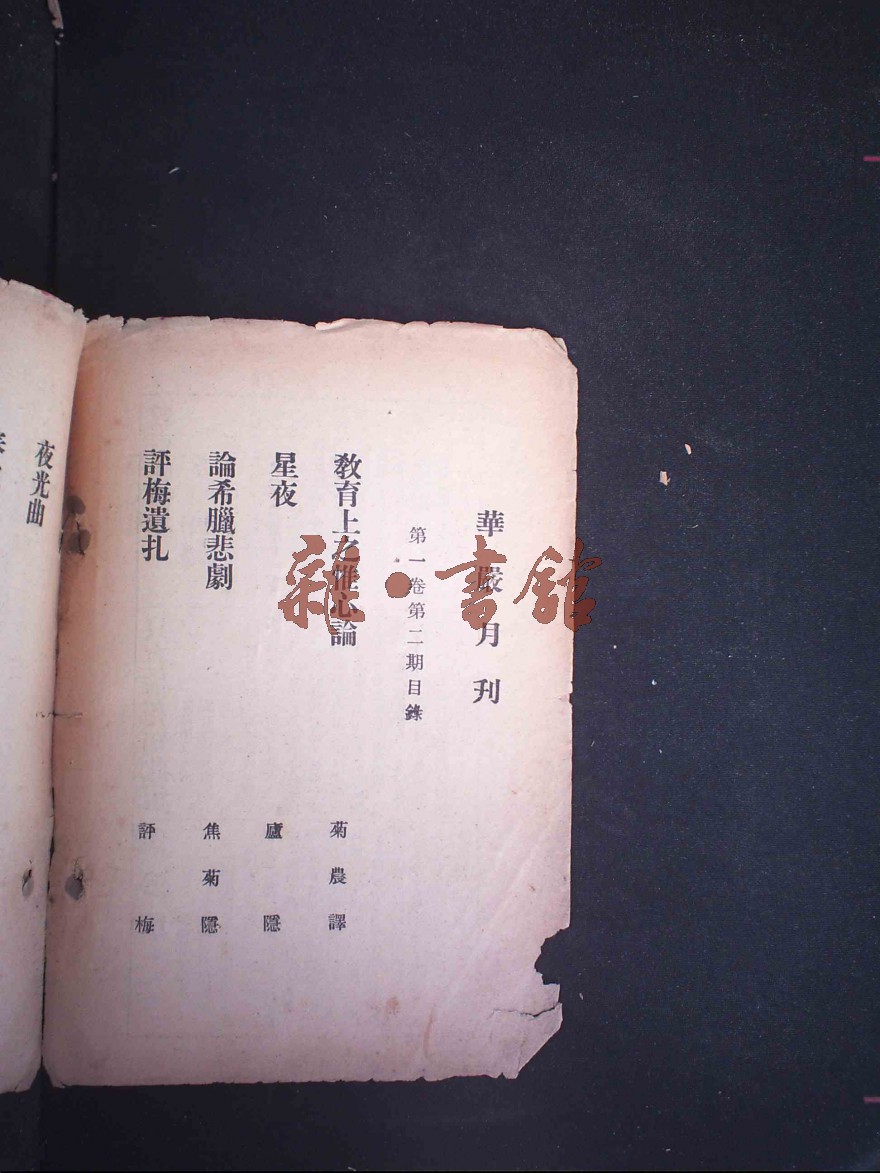 華嚴月刊
第一卷第二期目錄
教育上之惟心論 菊農譯
星夜 廬隱
論希臘悲劇 焦菊隱
評梅遺札 評梅
夜光曲
雜·書館